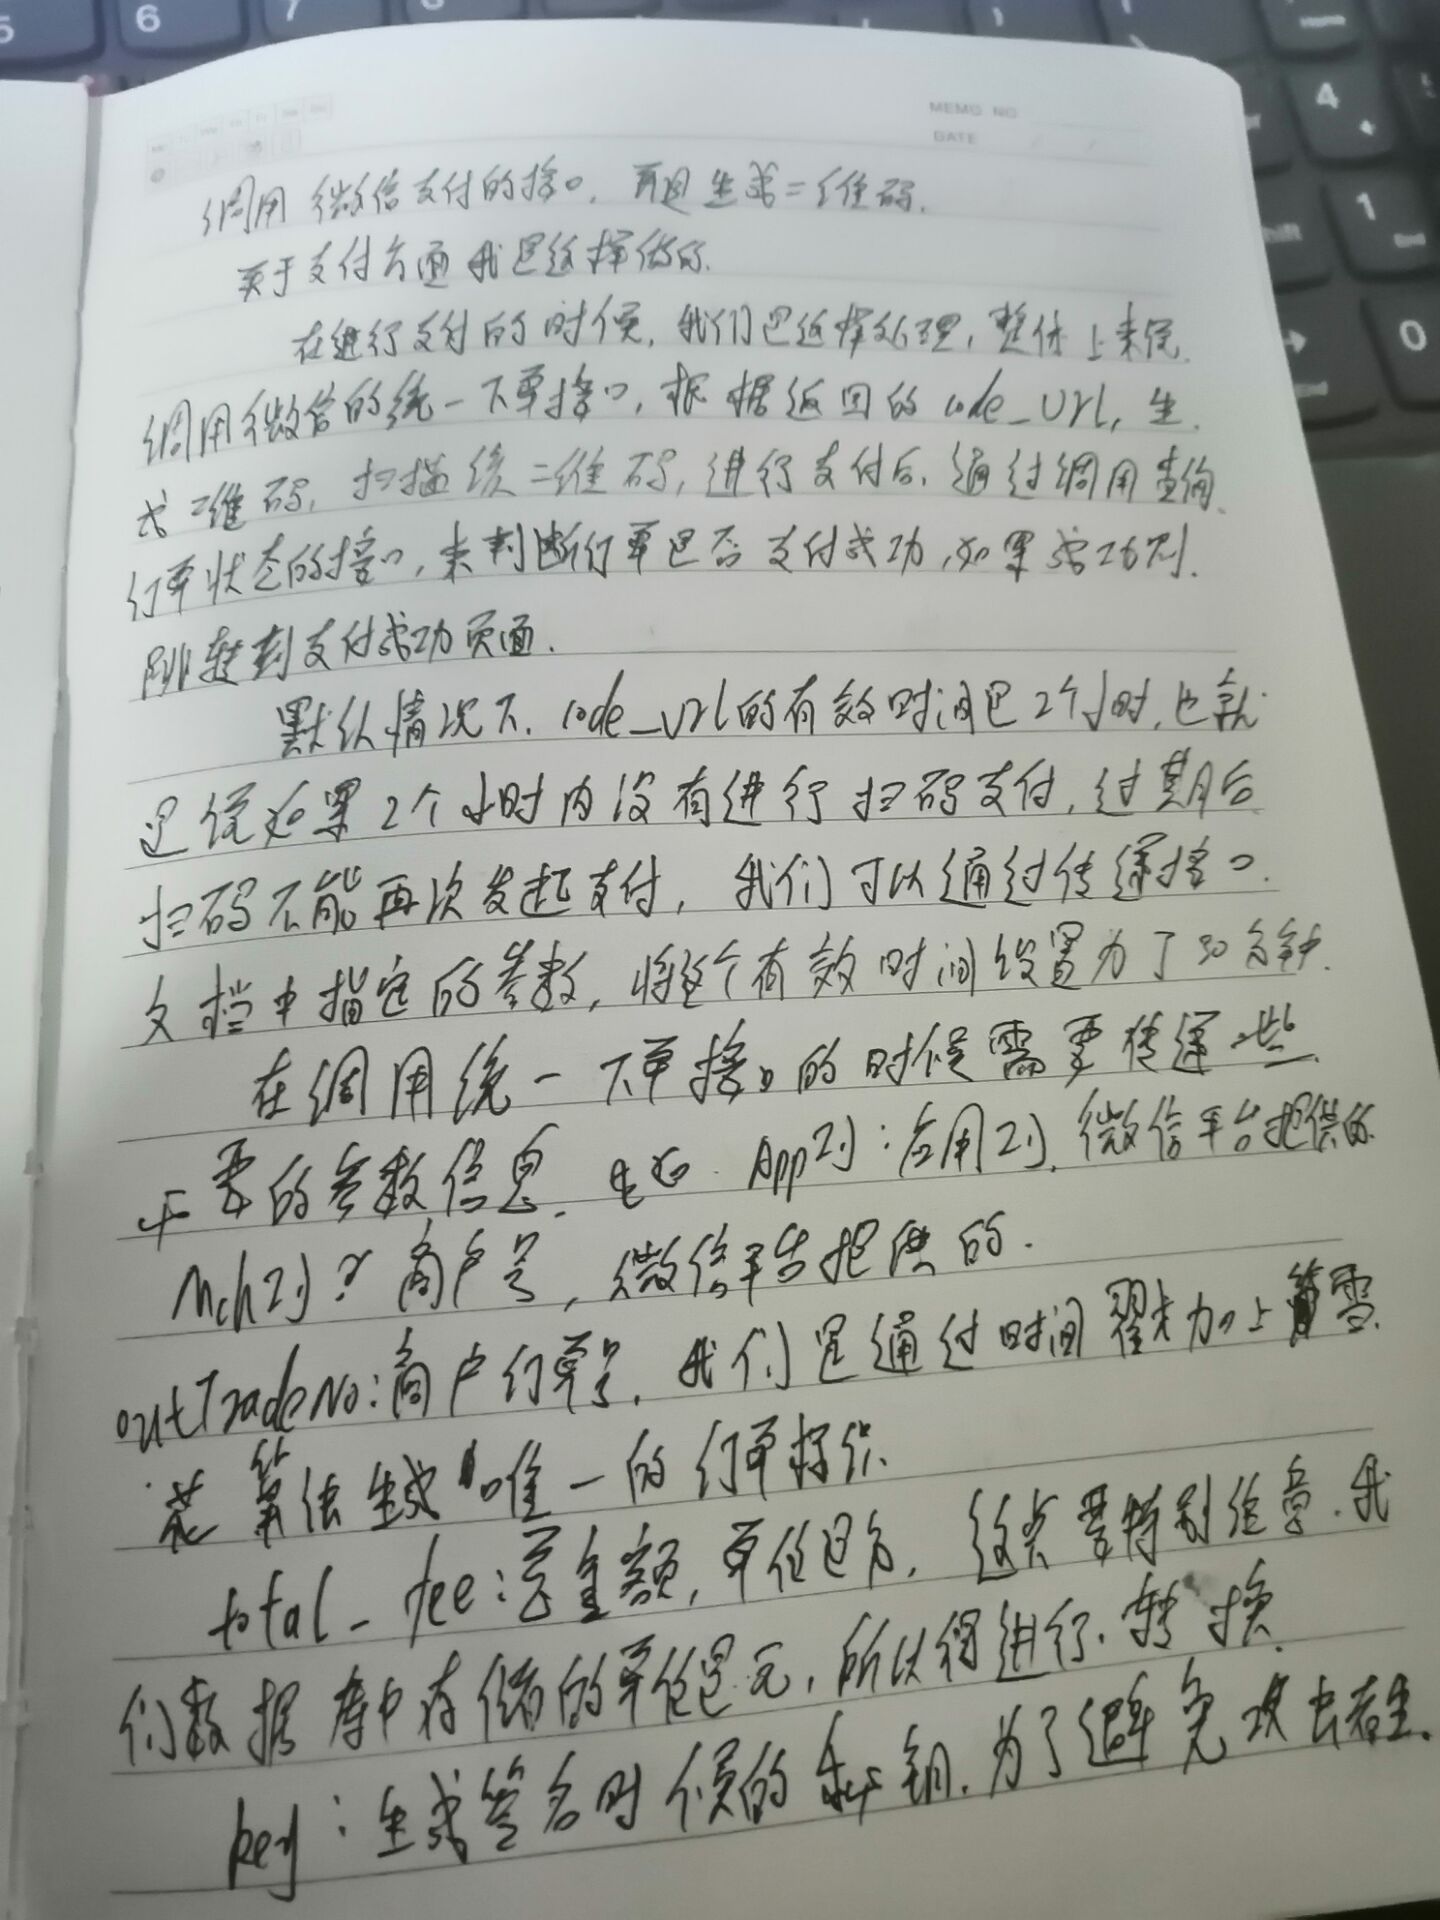 MEMO NO
DATE
调用微信支付的接口,再生成二维码.
关于支付方面我是这样做的.
在进行支付的时候,我们是这样处理,整体上来说.
调用微信的统一下单接口,根据返回的code_url,生
成二维码,扫描该二维码,进行支付后,通过调用查询
订单状态的接口,来判断订单是否支付成功,如果成功则.
跳转到支付成功页面.
默认情况下.code_url的有效时间是2个小时,也就
是说如果2个小时内没有进行扫码支付,过期后
扫码不能再次发起支付,我们可以通过传递接口.
文档中指定的参数,将这个有效时间设置为了30分钟.
在调用统一下单接口的时候需要传递一些
必要的参数信息.比如.AppID:应用ID.微信平台提供的.
MchID:商户号,微信平台提供的.
outTradeNo:商户订单号,我们是通过时间戳加上雪
花算法生成唯一的订单标识.
total_fee:总金额,单位是分,这点要特别注意.我
们数据库中存储的单位是元,所以得进行.转换.
key:生成签名时候的秘钥.为了避免攻击者.